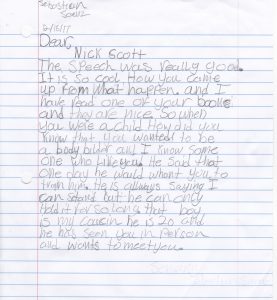 Sebastian
Saenz
2/15/17
Dear,
Nick Scott
The speech was really good.
It is so cool How you came
up from what happen. and I
have read one of your books
and they are nice. so when
you were a child How did you
know that you wanted to be
a body bilder and I know some
one who like you He said that
one day he would whant you to
train him. He is allways saying I
can stand but he can only
Hold it for so long that boy
is my cousin he is 20 and
he has seen you in Person
and wants to meet you.